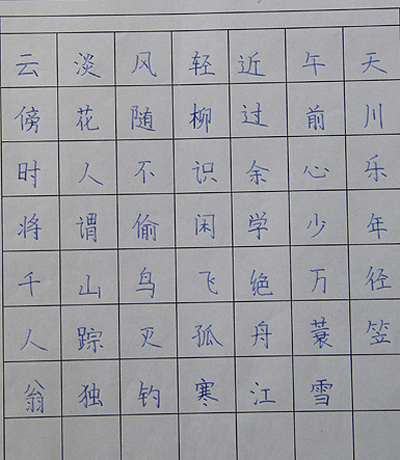 云淡风轻近午天
傍花随柳过前川
时人不识余心乐
将谓偷闲学少年
千山鸟飞绝万径
人踪灭孤舟蓑笠
翁独钓寒江雪